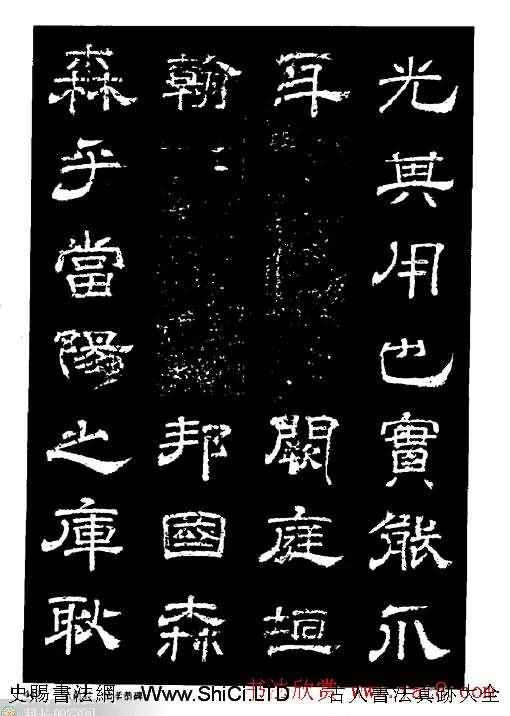 光其用也實能爪
牙闕庭垣
翰邦國森
森乎當陽之庫耿
书法欣赏
史賜書法網 Www.ShiCi.LTD 古人書法真跡大全